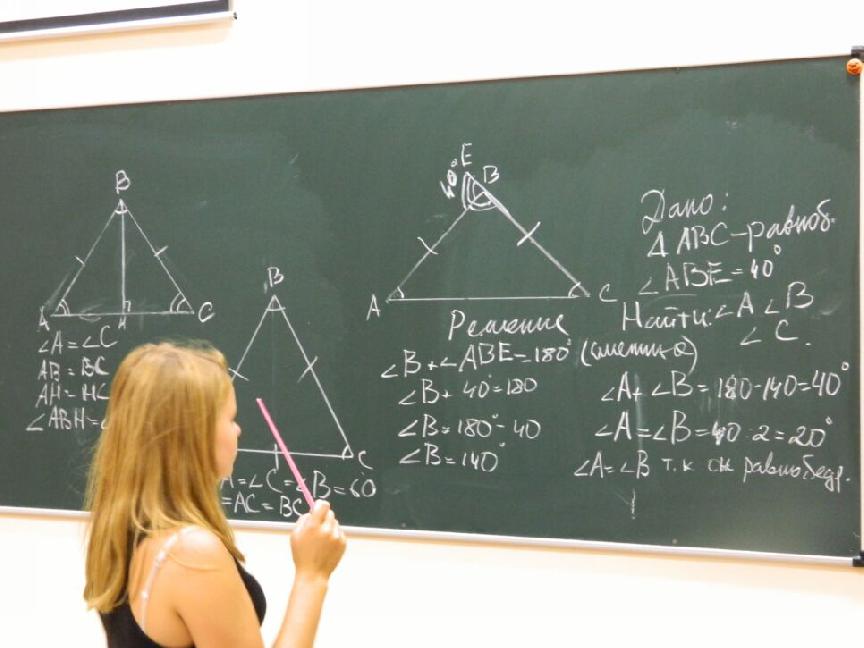 B
A H C
∠A = ∠C
AB = BC
AH = HC
∠ABH = ∠
B
C
A = ∠C = ∠B = 60
= AC = BC
E
40°
B
A C
Решение
∠B + ∠ABE = 180° (смежные)
∠B + 40° = 180
∠B = 180° - 40
∠B = 140°
Дано:
Δ ABC - равноб.
∠ABE = 40°
Найти: ∠A ∠B
∠C.
∠A + ∠B = 180 - 140 = 40°
∠A = ∠B = 40 : 2 = 20°
∠A = ∠B т.к он равнобедр.